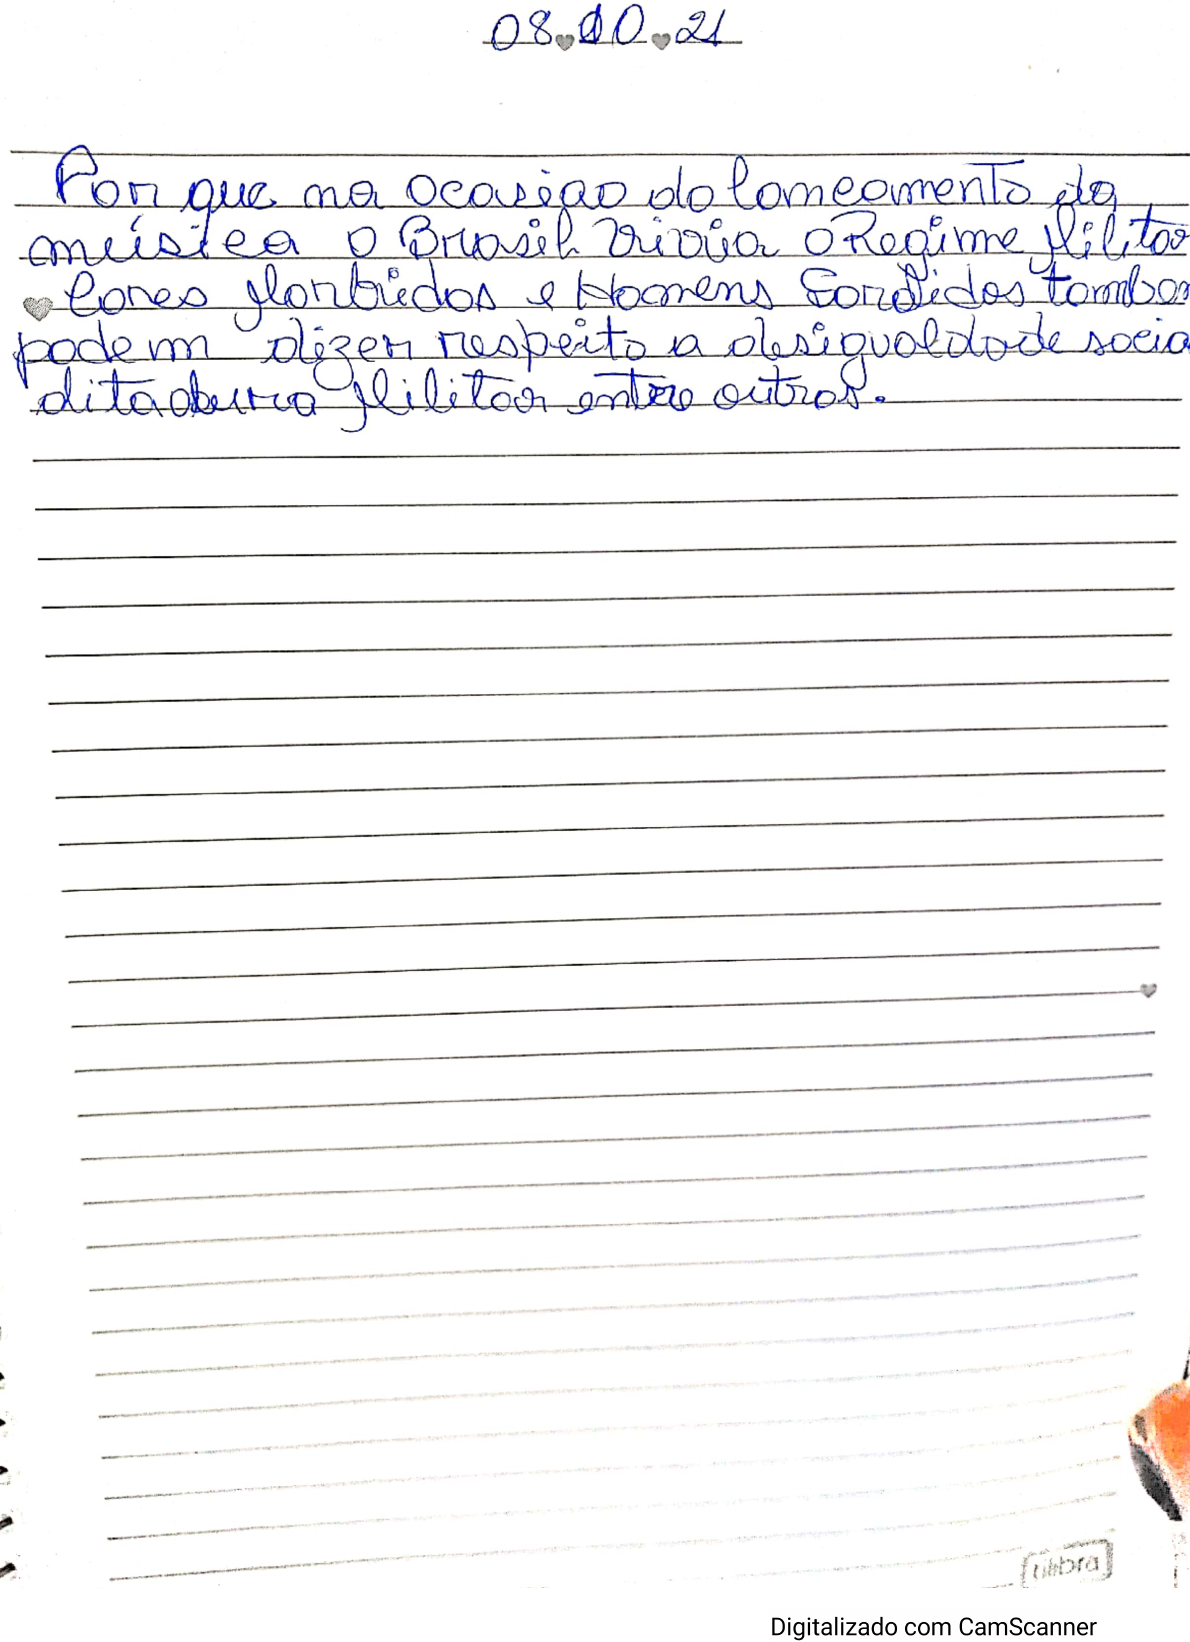 08.10.21
Por que na ocasiao do lancamento da
música o Brasil vivia o Regime Militar
Cores Morbidas e Homens Sordidos tambem
podem dizer respeito a desigualdade socia
ditadura Militar entre outros.
tilibra
Digitalizado com CamScanner